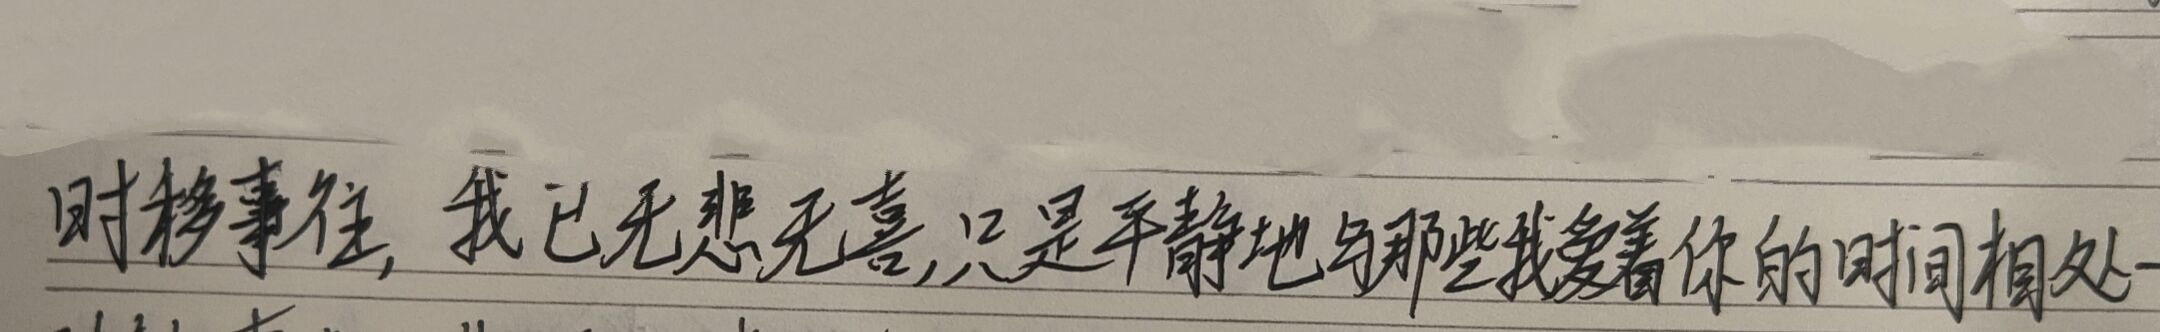 时移事往，我已无悲无喜，只是平静地与那些我爱着你的时间相处一